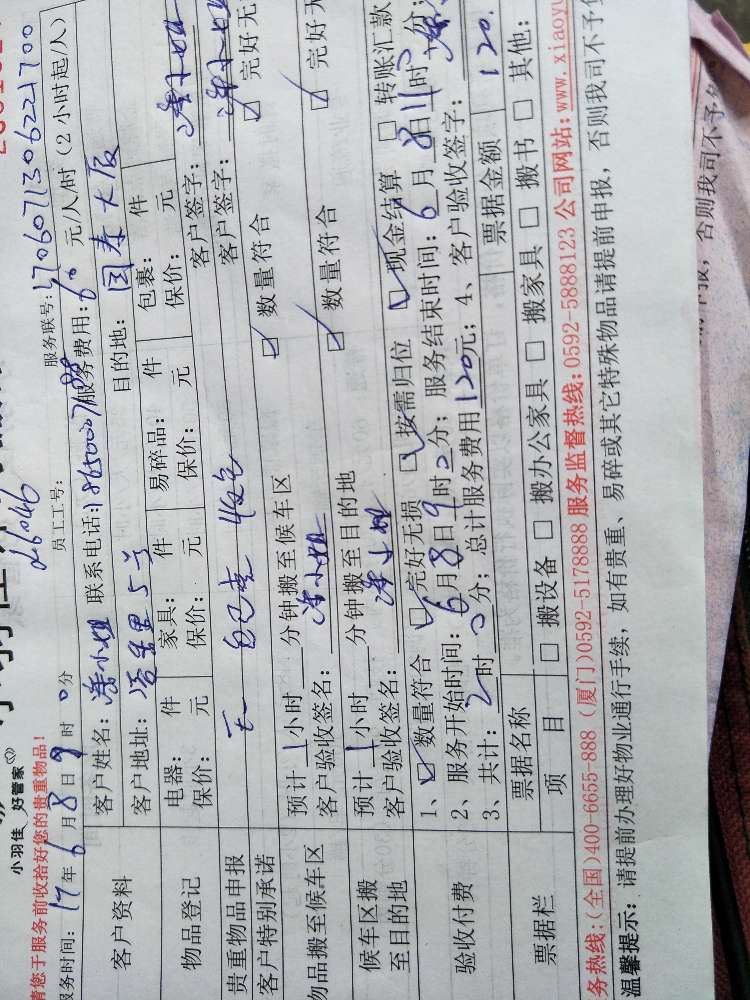 小羽佳 好管家
请您于服务前收拾好您的贵重物品!
员工工号: 26046 服务联号: 1706071306221700
服务时间: 17年6月8日9时0分 服务费用: 60元/人/时 (2小时起/人)
客户资料 客户姓名: 潘小姐 联系电话: 目的地: 国泰大厦
客户地址: 5号
物品登记 电器: 件 家具: 件 易碎品: 件 包裹: 件
保价: 元 保价: 元 保价: 元 保价: 元
贵重物品申报 无 客户签字: 潘小姐
客户特别承诺 自己负责 客户签字: 潘小姐
物品搬至候车区 预计1小时 分钟搬至候车区 ☑ 数量符合 ☑ 完好无
客户验收签名: 潘小姐
候车区搬至目的地 预计1小时 分钟搬至目的地 ☑ 数量符合 ☑ 完好无
客户验收签名: 潘小姐
验收付费 1、☑ 数量符合 ☑ 完好无损 ☑ 按需归位 ☑ 现金结算 □ 转账汇款
2、服务开始时间: 6月8日9时0分; 服务结束时间: 6月8日11时0分;
3、共计: 2时0分; 总计服务费用120元; 4、客户验收签字:
票据栏 票据名称 票据金额 120.
项目 □ 搬设备 □ 搬办公家具 □ 搬家具 □ 搬书 □ 其他:
务热线:(全国)400-6655-888 (厦门)0592-5178888 服务监督热线:0592-5888123 公司网站:www.xiaoyu
温馨提示: 请提前办理好物业通行手续, 如有贵重、易碎或其它特殊物品请提前申报, 否则我司不予
报, 否则我司不予